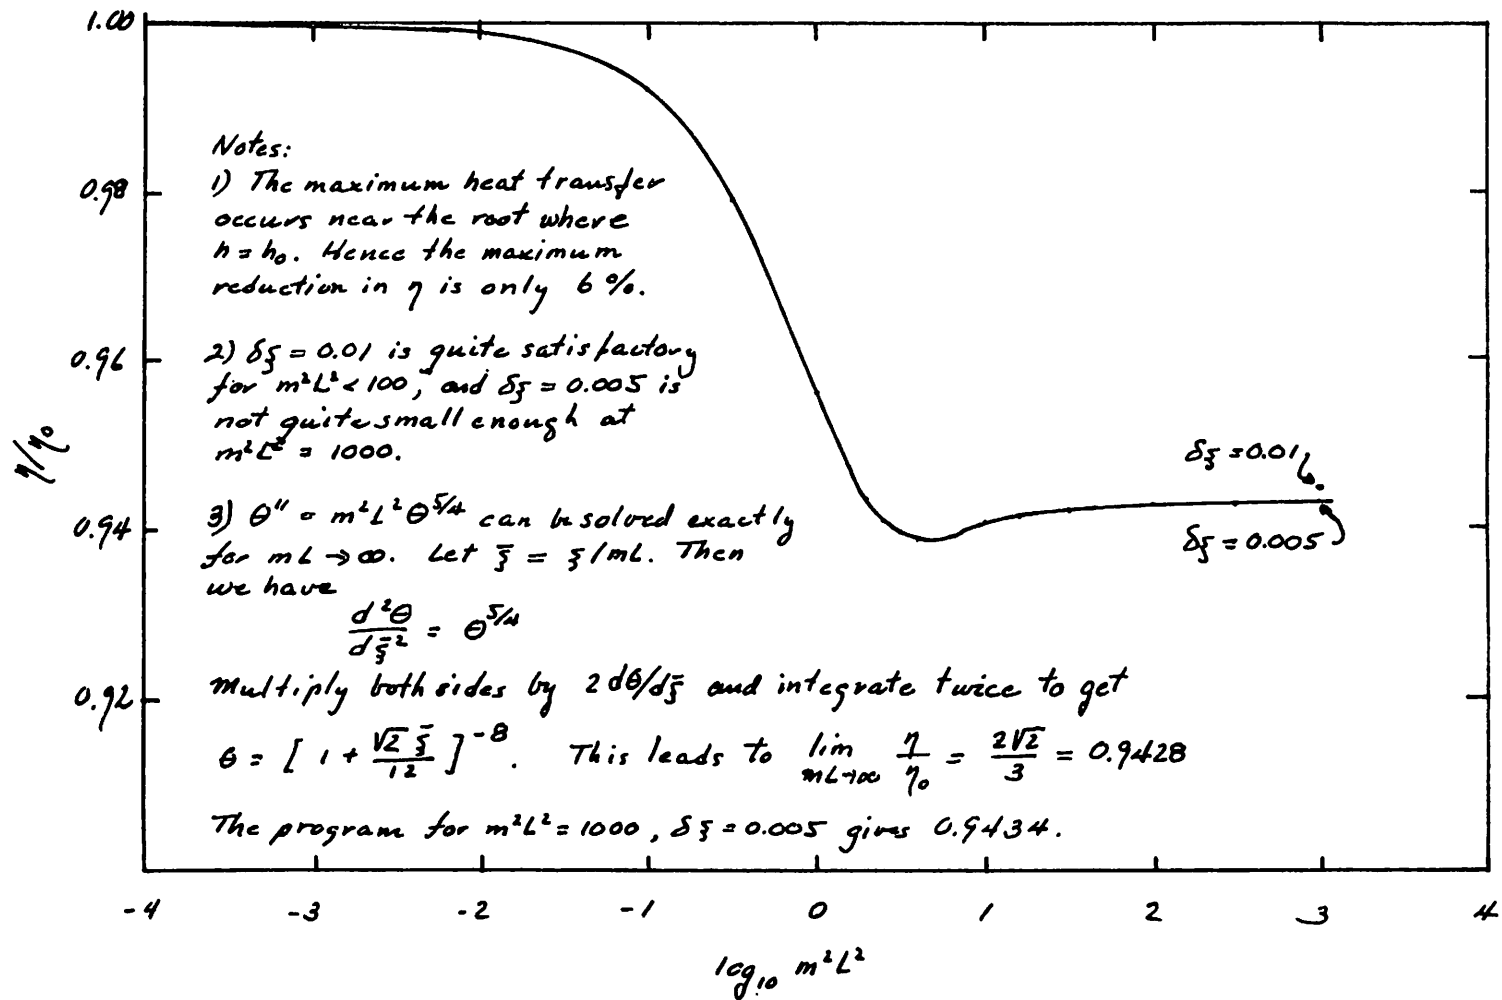 1.00
Notes:
1) The maximum heat transfer
occurs near the root where
h = h₀. Hence the maximum
reduction in η is only 6%.
0.98
2) δξ = 0.01 is quite satisfactory
for m²L² < 100, and δξ = 0.005 is
not quite small enough at
m²L² = 1000.
0.96
η/η₀
δξ = 0.01
δξ = 0.005
3) θ'' = m²L²θ^5/4 can be solved exactly
for mL → ∞. Let ξ̄ = ξ/mL. Then
we have
0.94
d²θ/dξ̄² = θ^5/4
Multiply both sides by 2dθ/dξ̄ and integrate twice to get
0.92
θ = [1 + √2 ξ̄/12]^-8. This leads to lim mL→∞ η/η₀ = 2√2/3 = 0.9428
The program for m²L² = 1000, δξ = 0.005 gives 0.9434.
-4 -3 -2 -1 0 1 2 3 4
log₁₀ m²L²